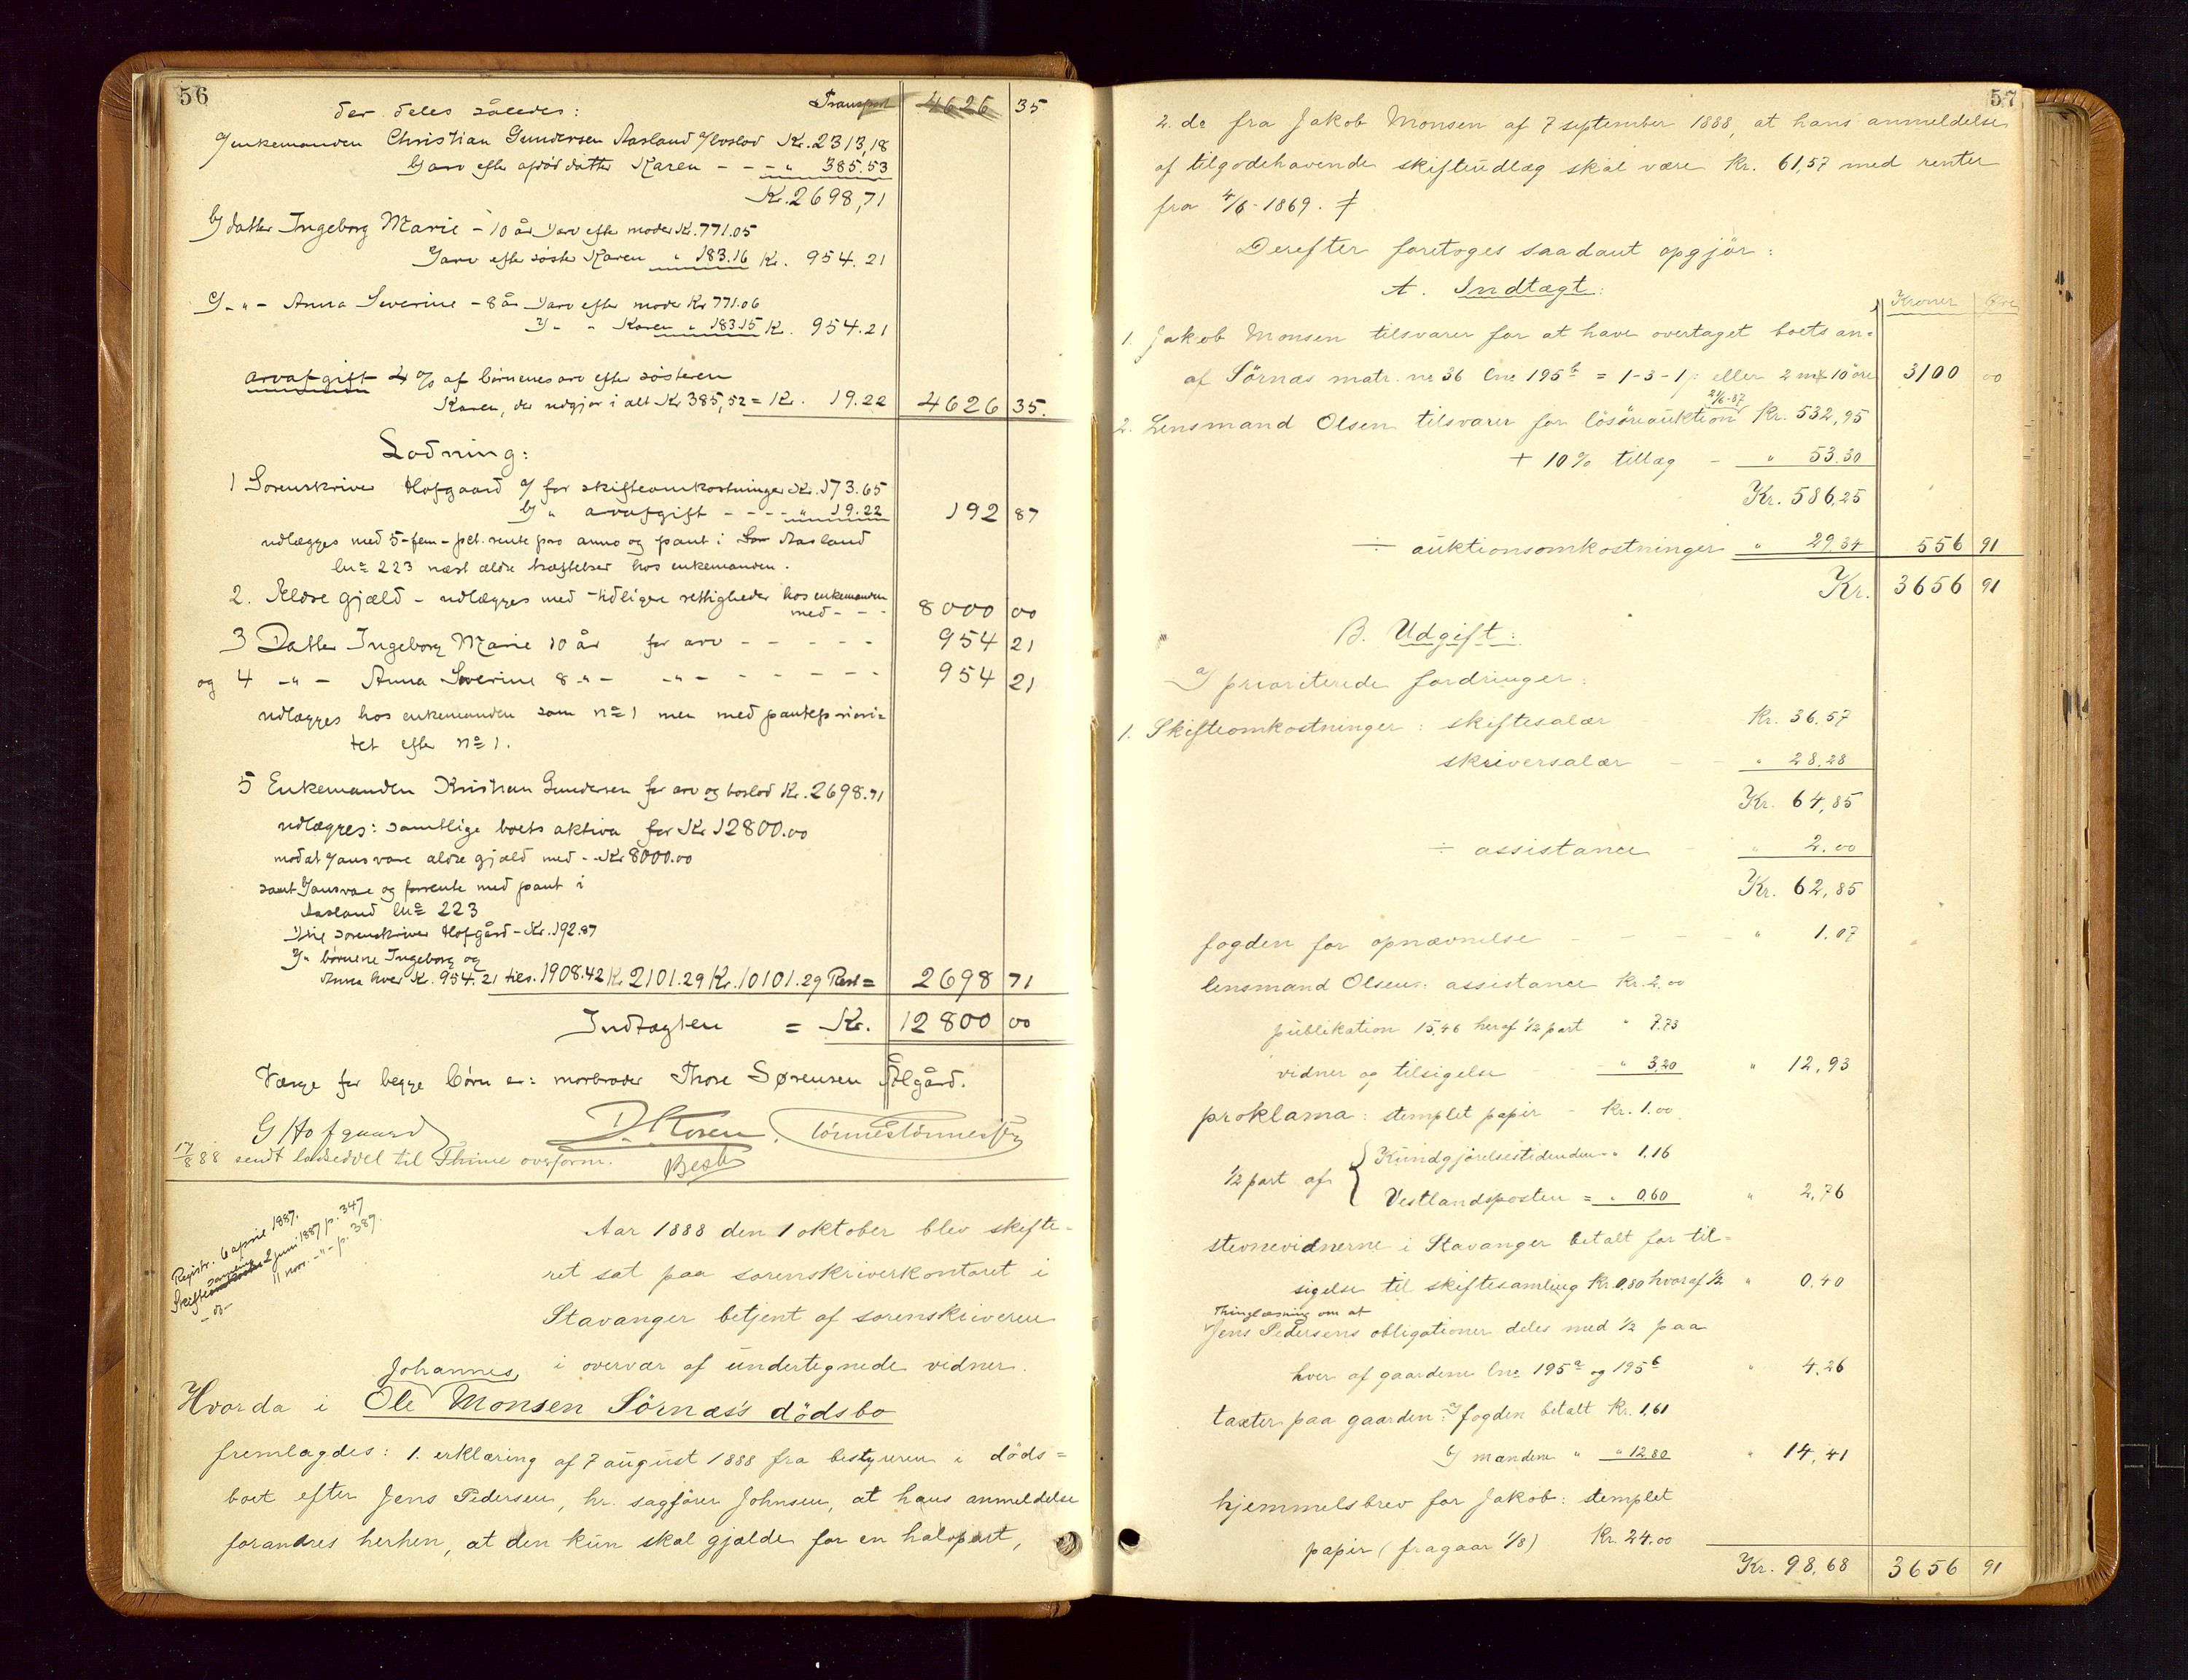 56
der deles således: Transport 4626 35
a/ enkemanden Christian Gundersen Aasland 1/ boslod Kr. 2313,18
2/ arv efter afdød datter Karen - - - " 385.53
Kr. 2698,71
b/ datter Ingeborg Marie - 10 år 1/ arv efter moder Kr. 771.05
2/ arv efter søster Karen " 183.16 Kr. 954.21
c/ - " - Anna Severine - 8 år 1/ arv efter moder Kr. 771.06
2/ - " Karen " 183.15 Kr. 954.21
arvafgift 4 % af børnenes arv efter søsteren
Karen, der udgjør i alt Kr 385,52 = Kr. 19.22 4626 35.
Lodning:
1 Sorenskriver Hofgaard a/ for skifteomkostninger Kr. 173.65
b/ " arvafgift - - - - " 19.22 192 87
udlægges med 5 - fem - pct. rente pro anno og pant i Aasland
lno 223 næst ældre hæftelser hos enkemanden.
2. Ældre gjæld - udlægges med tidligere rettigheder hos enkemanden
med - - - 8000 00
3 Datter Ingeborg Marie 10 år for arv - - - - - 954 21
og 4 - " - Anna Severine 8 - " - - " - - - - - - 954 21
udlægges hos enkemanden som no 1 men med pantepriori=
tet efter no 1.
5 Enkemanden Kristian Gundersen for arv og boslod Kr. 2698.71
udlægges: samtlige boets aktiva for Kr 12800.00
mod at 1/ ansvare ældre gjæld med - - Kr 8000.00
samt 2/ ansvare og forrente med pant i
Aasland lno 223
1/ til sorenskriver Hofgård - Kr. 192.87
2/ " børnene Ingeborg og
Anna hver Kr. 954.21 tils. 1908.42 Kr 2101.29 Kr. 10101.29 Rest = 2698 71
Indtægten = Kr. 12800 00
Værge for begge børn er: morbroder Thore Sørensen Ålgård.
G Hofgaard D. Koren. Tønnes Tønnessen
17/8 88 sendt lodseddel til Thime overform.
Registr. 6 april 1887.
Skiftesamling 2 juni 1887 p. 347
- do - 11 nov. - " - p. 389.
Aar 1888 den 1 oktober blev skifte=
ret sat paa sorenskriverkontoret i
Stavanger betjent af sorenskriveren
i overvær af undertegnede vidner.
Johannes
Hvorda i Ole Monsen Sörnæs's dödsbo
fremlagdes: 1. erklæring af 7 august 1888 fra bestyreren i döds=
boet efter Jens Pedersen, hr. sagförer Johnsen, at hans anmeldelse
forandres herhen, at den kun skal gjælde for en halvpart,
57
2. do fra Jakob Monsen af 7 september 1888, at hans anmeldelse
af tilgodehavende skifteudlæg skal være Kr. 61,57 med renter
fra 4/6 - 1869.
Derefter foretoges saadant opgjör:
A. Indtægt:
Kroner Öre
1. Jakob Monsen tilsvarer for at have overtaget boets an=
af Sörnæs matr. no 36 lno 195b = 1-3-1/: eller 2 mk 10 öre 3100 00
21/6-87
2. Lensmand Olsen tilsvarer for lösöreauktion Kr. 532,95
+ 10 % tillæg - " 53.30
Kr. 586,25
÷ auktionsomkostninger " 29,34 556 91
Kr. 3656 91
B. Udgift:
a/ prioriterede fordringer:
1. Skifteomkostninger: skiftesalær Kr. 36.57
skriversalær - - " 28.28
Kr. 64,85
÷ assistance - " 2.00
Kr. 62,85
fogden for opnævnelse - - - - " 1.07
lensmand Olsen: assistance Kr. 2,00
publikation 15,46 heraf 1/2 part " 7.73
vidner og tilsigelse - - " 3,20 " 12,93
proklama: stemplet papir - Kr. 1.00
1/2 part af { Kundgjörelsestidenden - " 1.16
Vestlandsposten = " 0,60 " 2,76
stevnevidnerne i Stavanger betalt for til=
sigelse til skiftesamling Kr. 0,80 hvoraf 1/2 " 0.40
Thinglæsning om at
Jens Pedersens obligationer deles med 1/2 paa
hver af gaardene lno 195a og 195b " 4.26
taxter paa gaarden: a/ fogden betalt Kr. 1,61
b/ mændene " " 12.80 " 14,41
hjemmelsbrev for Jakob: stemplet
papir (fragaar 1/8) Kr. 24.00
Kr. 98,68 3656 91